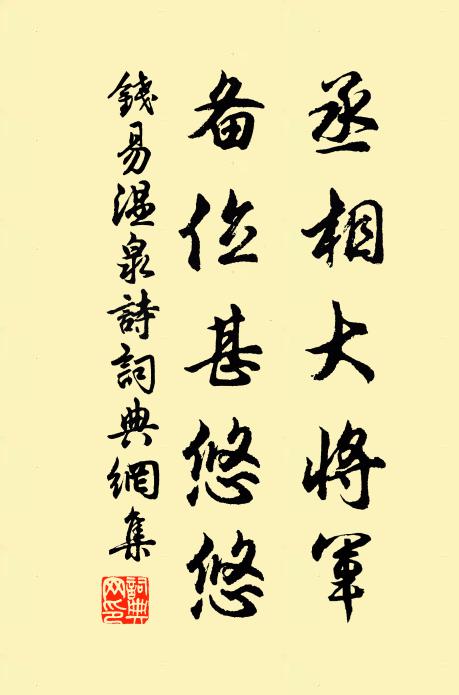 丞相大将军
备位甚悠悠
錢易温泉詩詞典網集
詞典網印